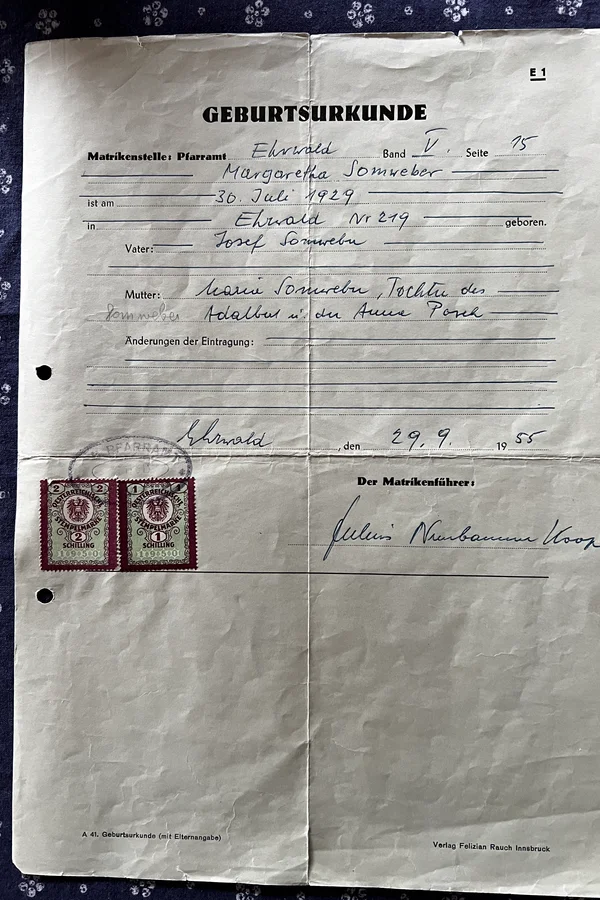 E 1
GEBURTSURKUNDE
Matrikenstelle: Pfarramt Ehrwald Band V. Seite 15
Margaretha Somweber
ist am 30. Juli 1929
in Ehrwald Nr 219 geboren.
Vater: Josef Somweber
Mutter: Maria Somweber, Tochter des
Somweber Adalbert u. der Anna Posch
Änderungen der Eintragung:
Ehrwald, den 29. 9. 1955
PFARRAMT
Der Matrikenführer:
2 2 1 1
ÖSTERREICHISCHE STEMPELMARKE ÖSTERREICHISCHE STEMPELMARKE
2 1
SCHILLING SCHILLING
1950 1950
Julius Koop
A 41. Geburtsurkunde (mit Elternangabe)
Verlag Felizian Rauch Innsbruck